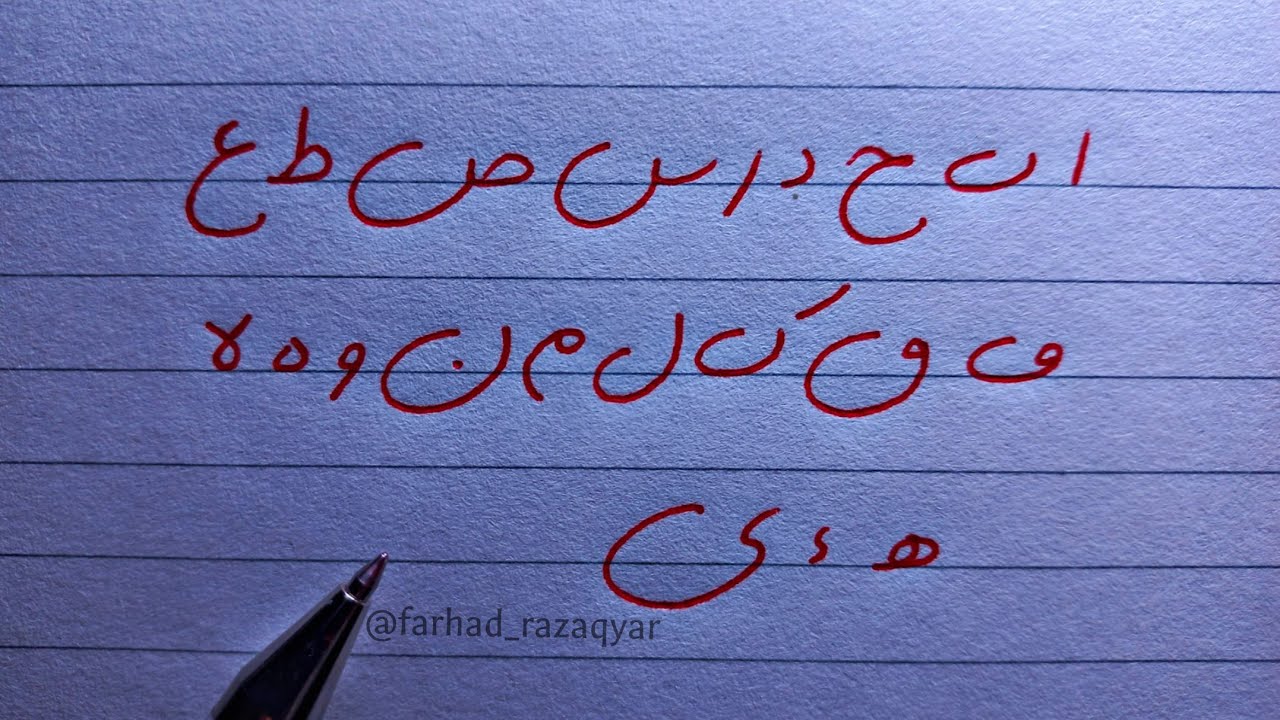 ا ں ح د ر س ص ط ع
ڡ ٯ ک ل م ن و ه لا
ھ ء ی
@farhad_razaqyar